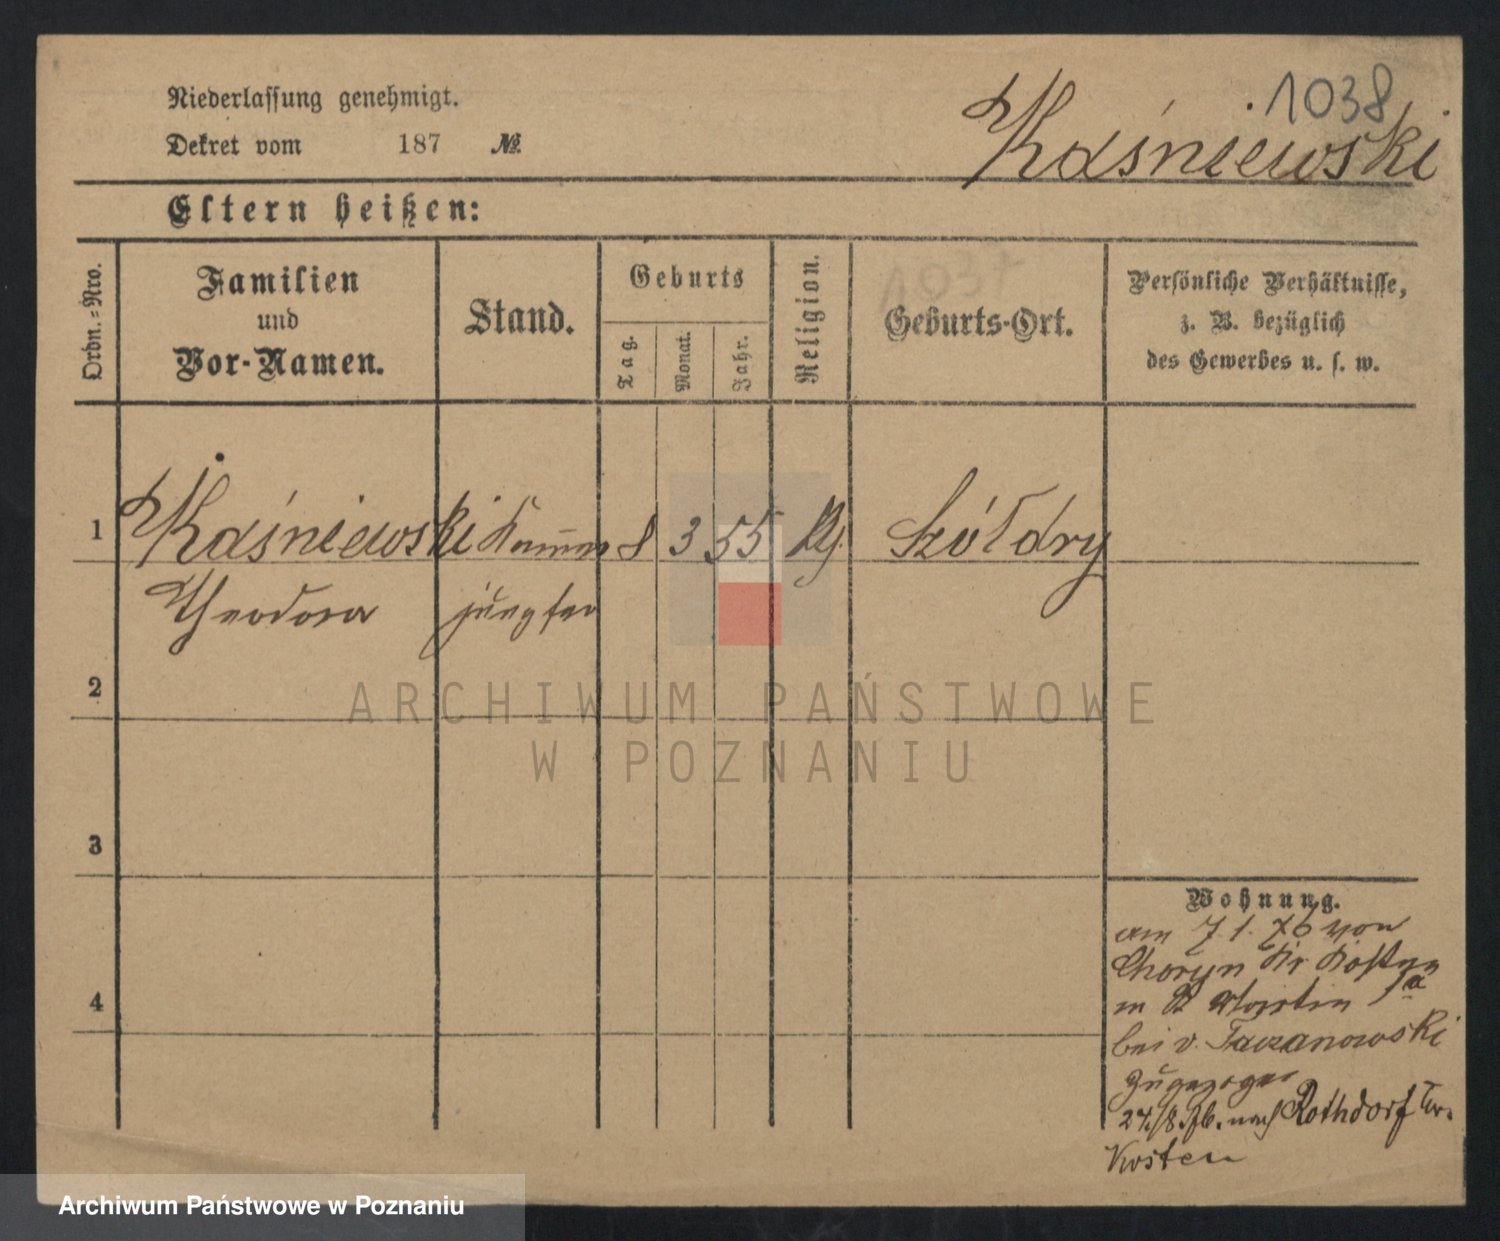 1038
Niederlassung genehmigt.
Kaśniewski
Dekret vom 187 №.
Eltern heißen:
Ordn.-Nro.
Familien
und
Vor-Namen.
Stand.
Geburts
Tag.
Monat.
Jahr.
Religion.
Geburts-Ort.
Persönliche Verhältnisse,
z. B. bezüglich
des Gewerbes u. s. w.
1 Kaśniewski Kammer 8 3 55 Szółdry
Theodora jungfer
2
ARCHIWUM PAŃSTWOWE
W POZNANIU
3
4
Wohnung.
am 7.1.76 von
Choryn Kr Kosten
in St Martin
bei v. Taczanowski
zugezogen
27./8. nach Rothdorf Kr.
Kosten
Archiwum Państwowe w Poznaniu